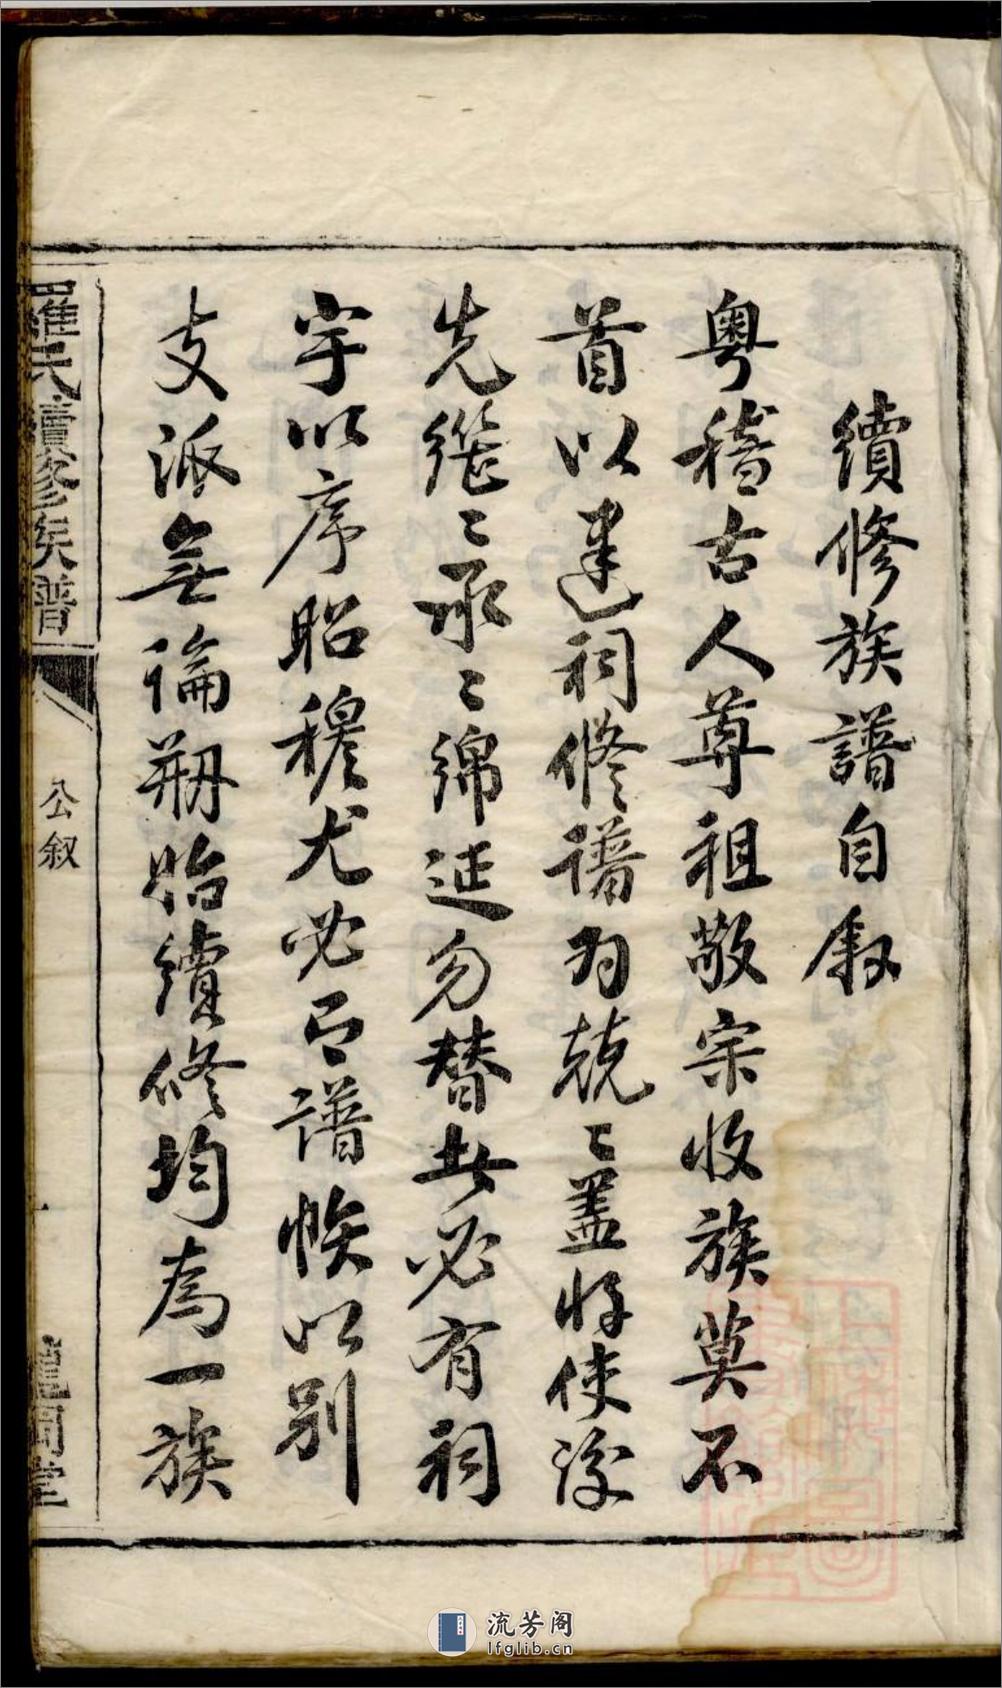 續修族譜自叙
粵稽古人尊祖敬宗收族莫不
首以建祠修譜為兢〻盖將使後
先繼〻承〻綿延勿替此必有祠
宇以序昭穆尤必有譜帙以別
支派無論刱始續修均為一族
羅氏續修族譜
公叙
一
龍岡堂
流芳阁
lfglib.cn